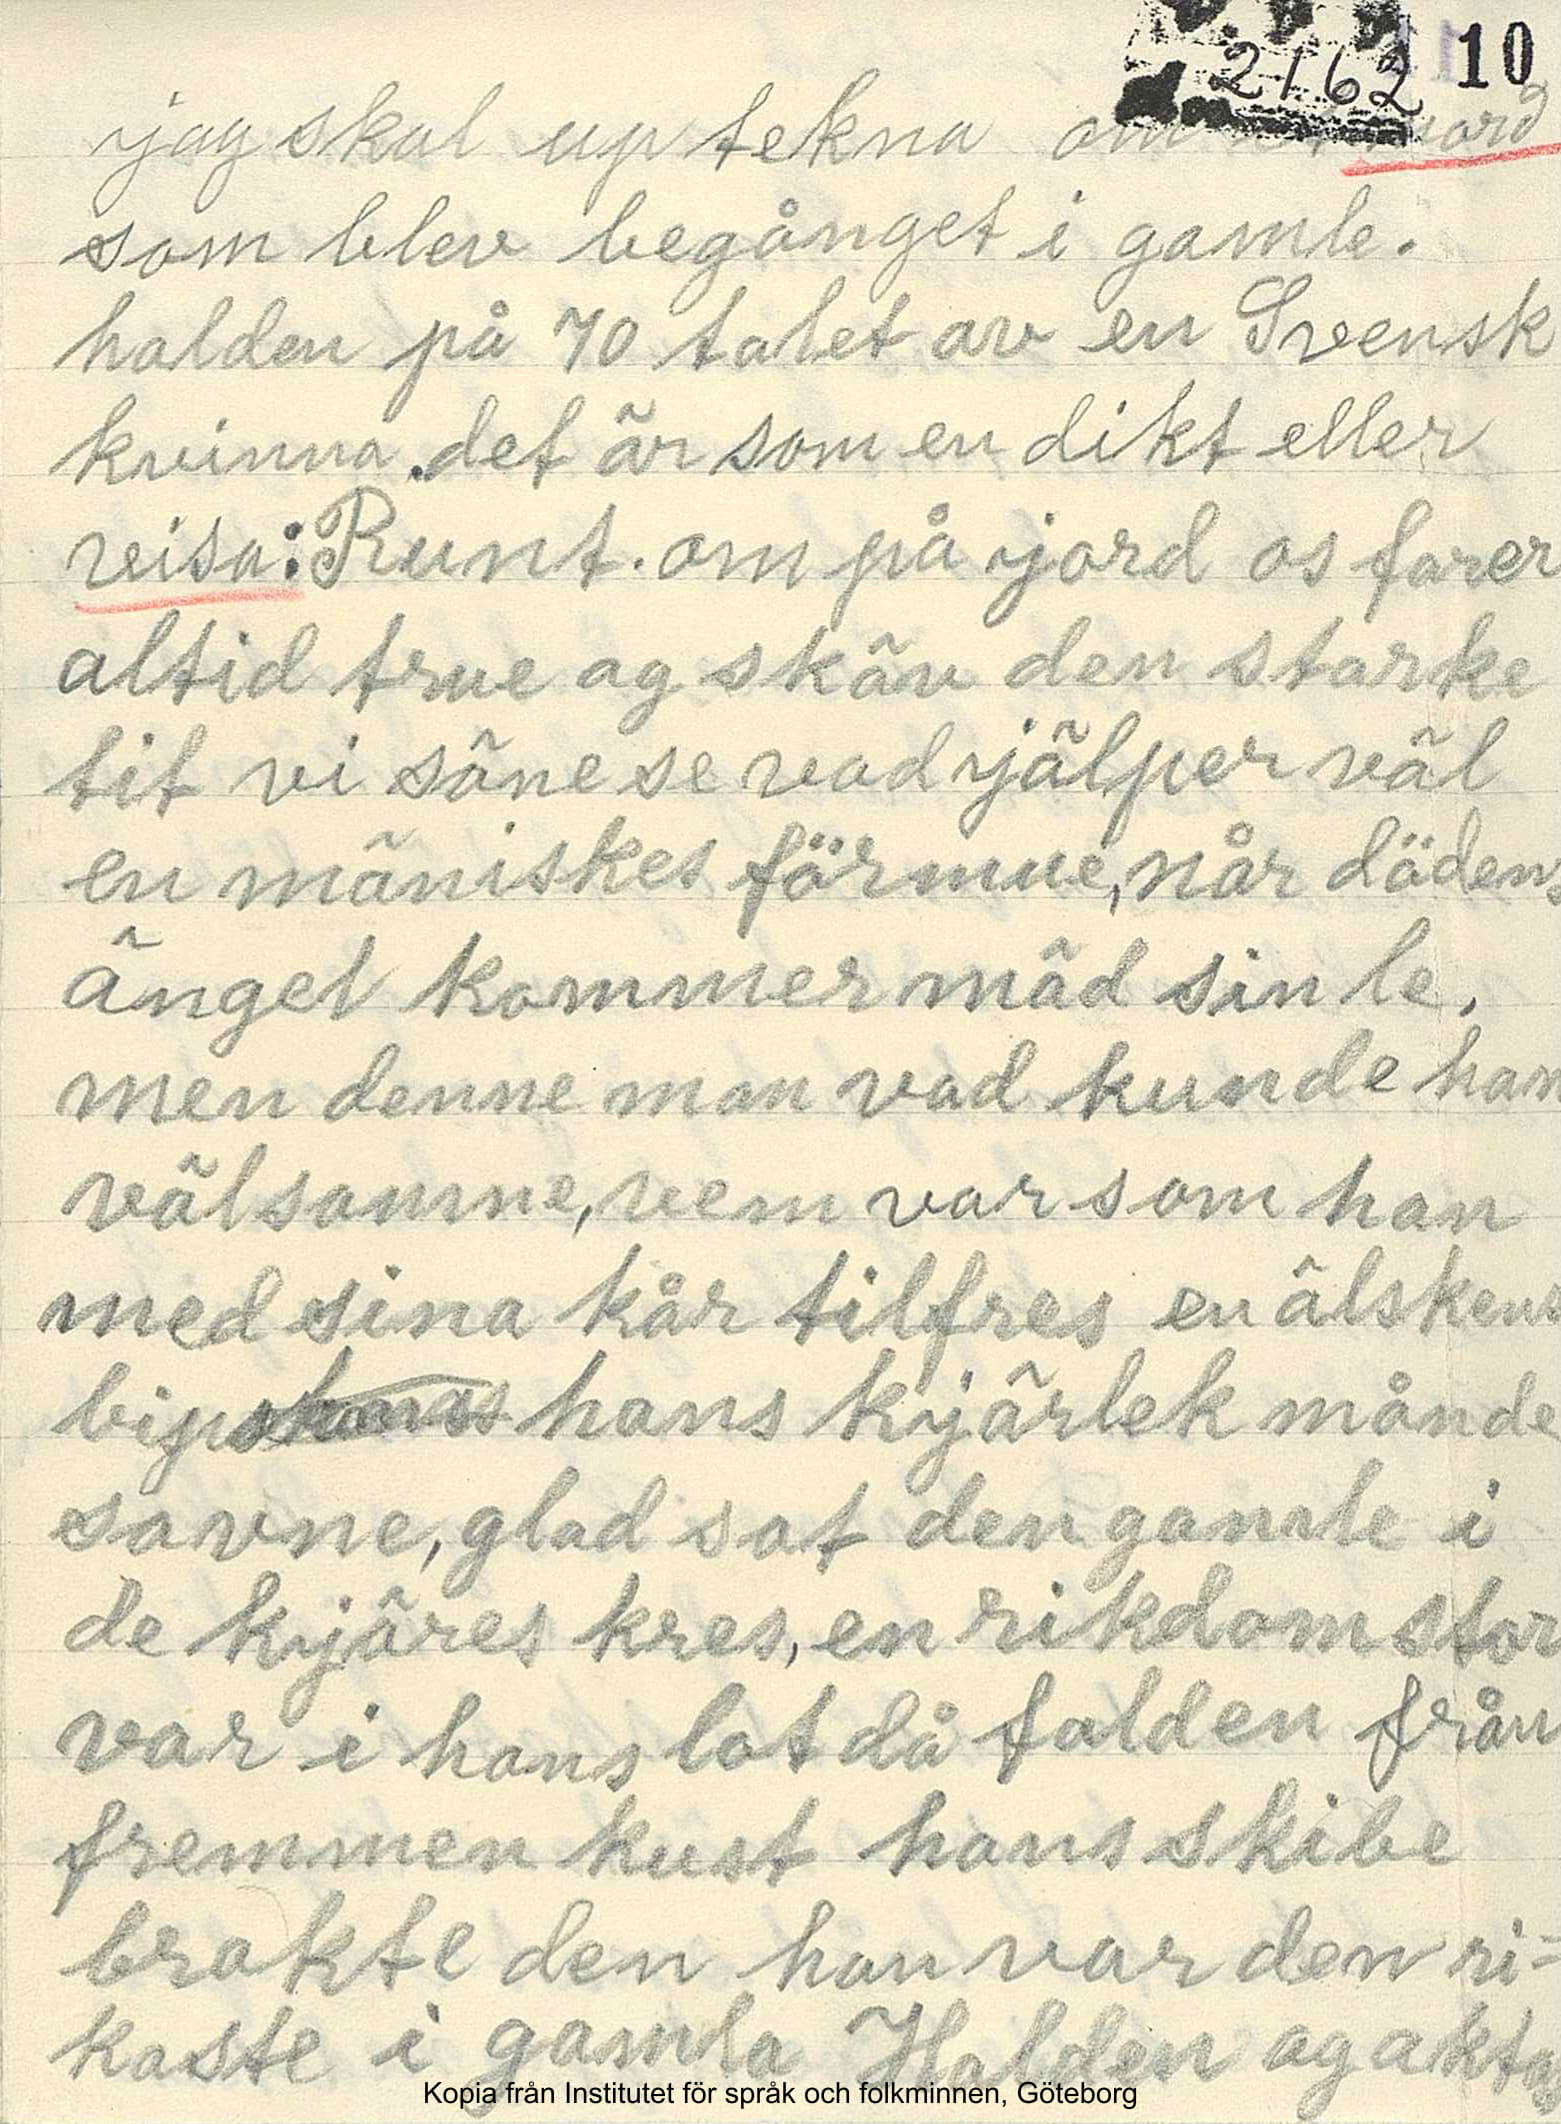 2162 10
jag skal up tekna om mord
som blev begånget i gamle.
halden på 70 talet av en Svensk
kvinna. det är som en dikt eller
visa: Runt. om på jord os farer
altid true og skäv den starke
tit vi säne se vad jälper väl
en mäniskes förmue, når dödens
ängel kommer mäd sin le.
men denne man vad kunde han
väl savne, vem var som han
med sina kår tilfres en älskens
hans kjärlek månde
savne, glad sat den gamle i
de kjäres kres, en rikdom stor
var i hans lot då falden från
fremmen kust hans skibe
brakte den han var den ri=
kaste i gamla Halden og akta
Kopia från Institutet för språk och folkminnen, Göteborg